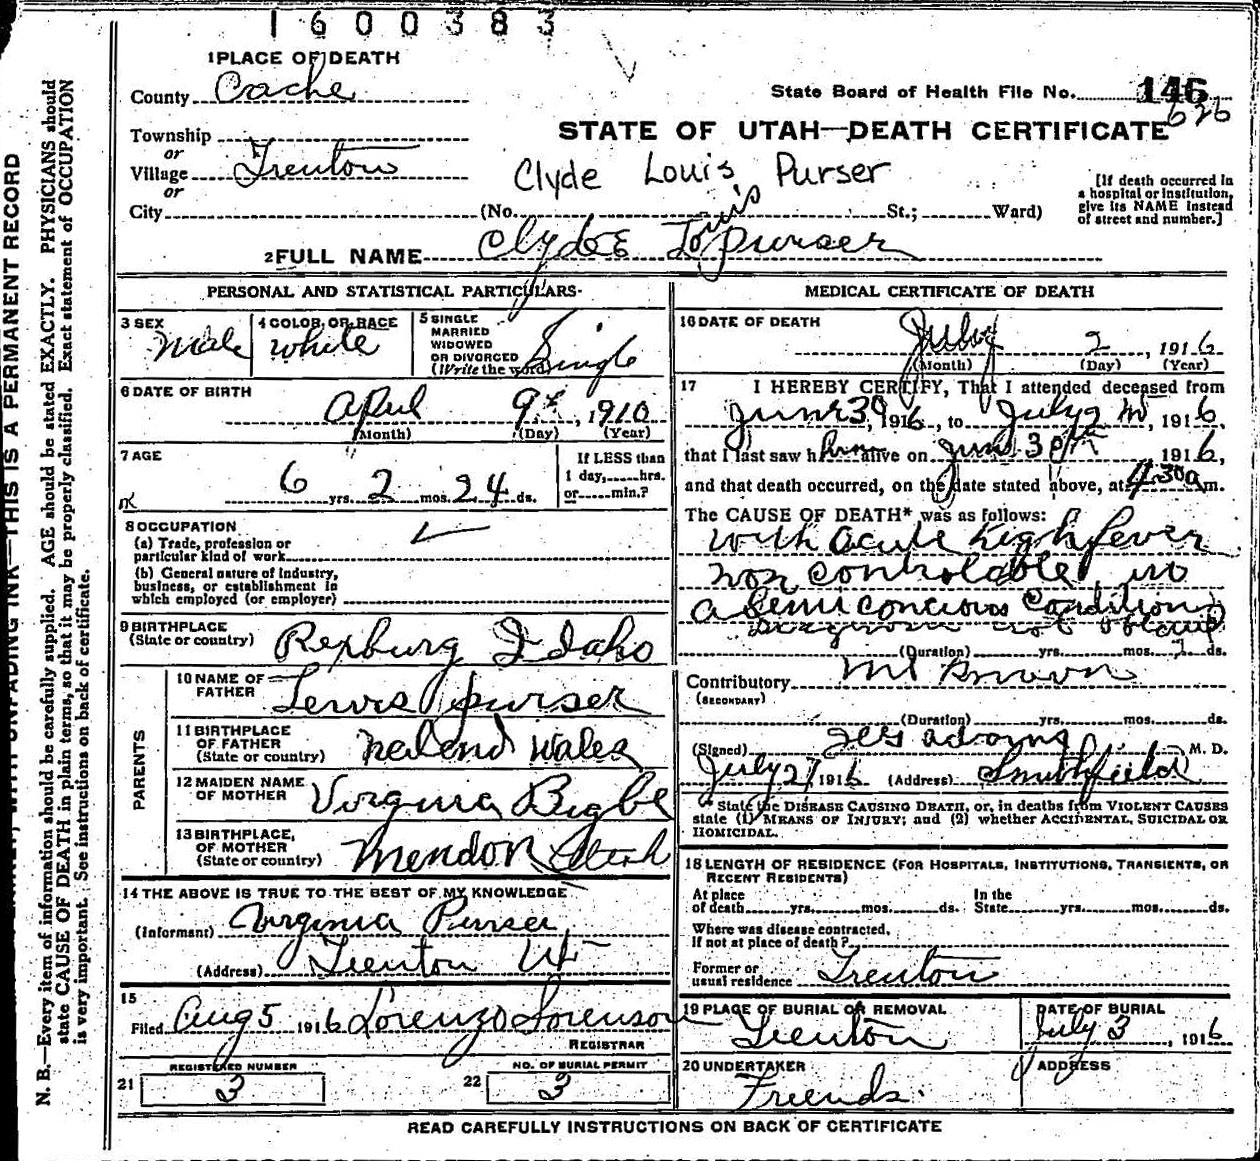 1600383
1 PLACE OF DEATH
County Cache
State Board of Health File No. 146
626
Township
or
Village Trenton
or
City
STATE OF UTAH—DEATH CERTIFICATE
Clyde Louis Purser
(No. St.; Ward)
[If death occurred in
a hospital or institution,
give its NAME instead
of street and number.]
2 FULL NAME Clyde Louis Purser
PERSONAL AND STATISTICAL PARTICULARS
3 SEX Male
4 COLOR OR RACE white
5 SINGLE
MARRIED
WIDOWED
OR DIVORCED
(Write the word) Single
6 DATE OF BIRTH
April 9th, 1910
(Month) (Day) (Year)
7 AGE
6 yrs. 2 mos. 24 ds.
If LESS than
1 day,......hrs.
or......min.?
8 OCCUPATION
(a) Trade, profession or
particular kind of work
(b) General nature of industry,
business, or establishment in
which employed (or employer)
9 BIRTHPLACE
(State or country) Rexburg Idaho
PARENTS
10 NAME OF
FATHER Lewis purser
11 BIRTHPLACE
OF FATHER
(State or country) Wales
12 MAIDEN NAME
OF MOTHER Virginia
13 BIRTHPLACE
OF MOTHER
(State or country) Mendon Utah
14 THE ABOVE IS TRUE TO THE BEST OF MY KNOWLEDGE
(Informant) Virginia Purser
(Address) Trenton Ut
15
Filed Aug 5 1916 Lorenzo Sorenson
REGISTRAR
21 REGISTERED NUMBER
3
22 NO. OF BURIAL PERMIT
3
MEDICAL CERTIFICATE OF DEATH
16 DATE OF DEATH
July 2, 1916
(Month) (Day) (Year)
17 I HEREBY CERTIFY, That I attended deceased from
June 30, 1916, to July 2, 1916,
that I last saw him alive on June 30th 1916,
and that death occurred, on the date stated above, at 4.30 a m.
The CAUSE OF DEATH* was as follows:
with acute high fever
non controlable in
a Semi concious Condition
not
(Duration) yrs. mos. 2 ds.
Contributory
(SECONDARY)
(Duration) yrs. mos. ds.
(Signed) M. D.
July 2, 1916 (Address) Smithfield
* State the DISEASE CAUSING DEATH, or, in deaths from VIOLENT CAUSES
state (1) MEANS OF INJURY; and (2) whether ACCIDENTAL, SUICIDAL OR
HOMICIDAL.
18 LENGTH OF RESIDENCE (FOR HOSPITALS, INSTITUTIONS, TRANSIENTS, OR
RECENT RESIDENTS)
At place
of death yrs. mos. ds.
In the
State yrs. mos. ds.
Where was disease contracted,
if not at place of death?
Former or
usual residence Trenton
19 PLACE OF BURIAL OR REMOVAL
Trenton
DATE OF BURIAL
July 3, 1916
20 UNDERTAKER
Friends
ADDRESS
READ CAREFULLY INSTRUCTIONS ON BACK OF CERTIFICATE
WITH UNFADING INK—THIS IS A PERMANENT RECORD
N. B.—Every item of information should be carefully supplied. AGE should be stated EXACTLY. PHYSICIANS should
state CAUSE OF DEATH in plain terms, so that it may be properly classified. Exact statement of OCCUPATION
is very important. See instructions on back of certificate.